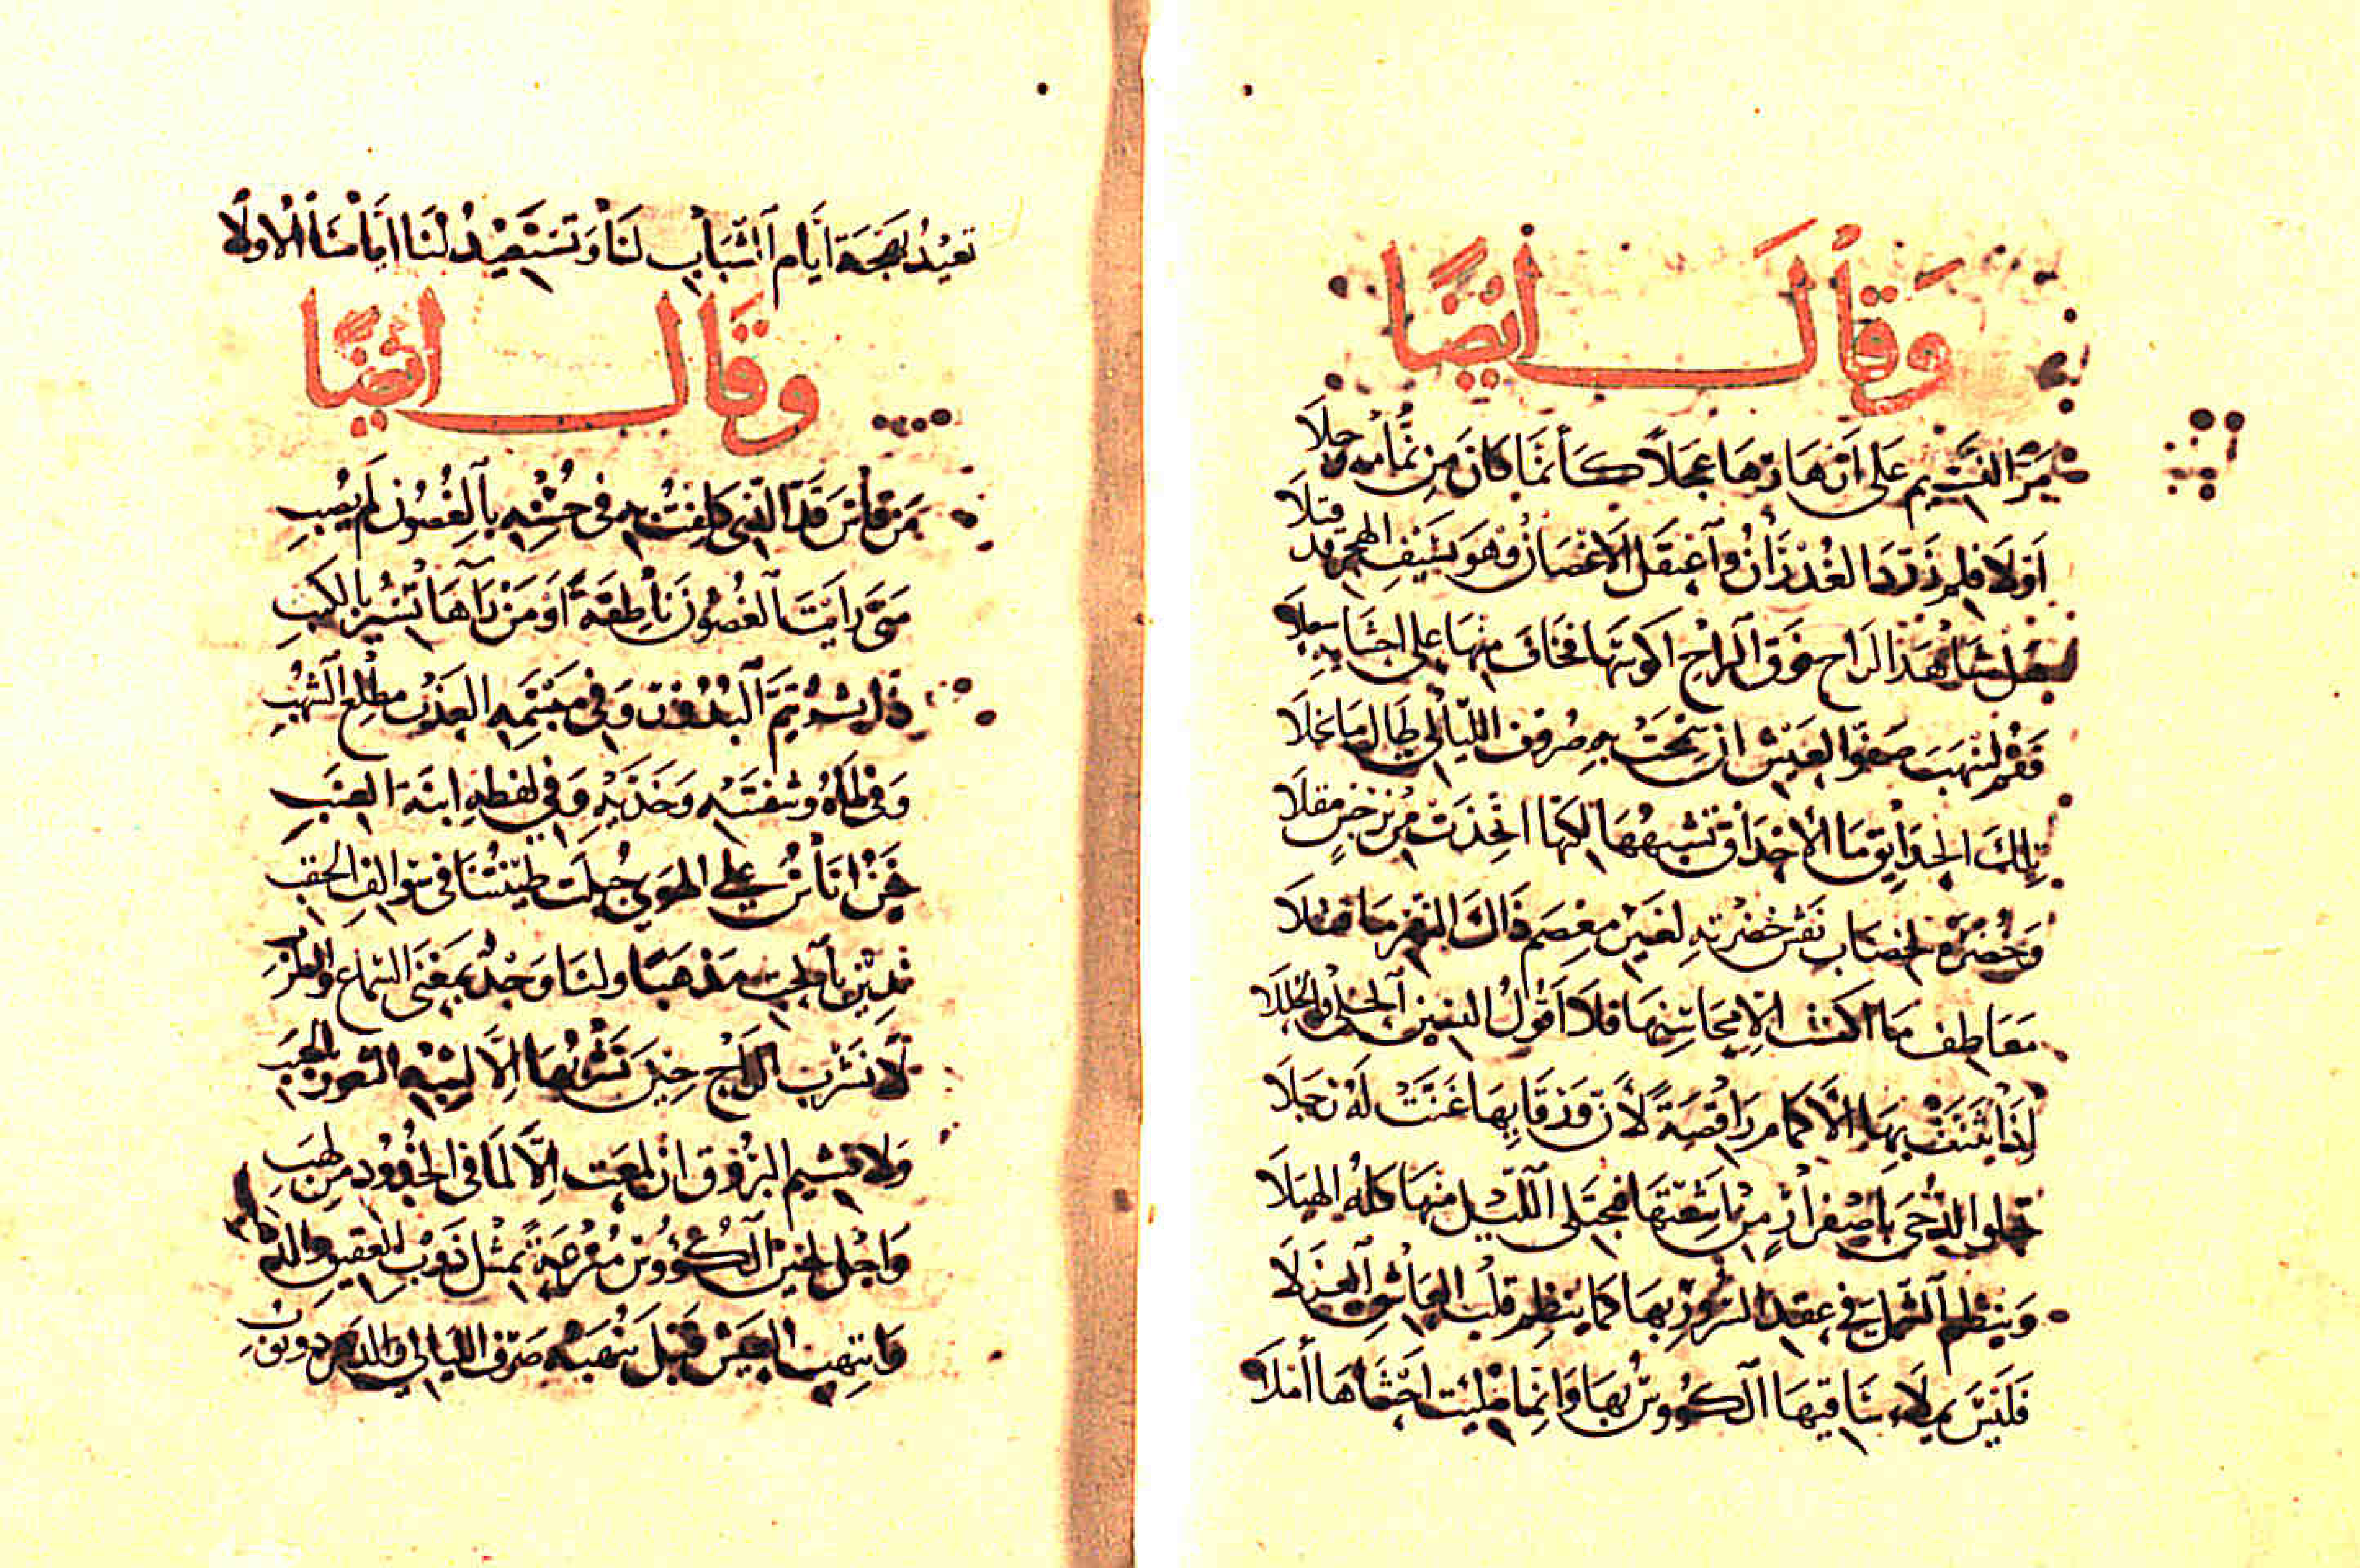 وَقَالَ ايْضًا
مَرَّ النَّسِيم عَلى انهَارهَا عجلاً كَأنمَا كانَ مِن
اوَلَا فلم زَرَدَ الغُدْرَانُ وآعتقَل الاغصَانُ وَهوَ بسَيْفِ الهجر قد قتلا
شَاهَدَ الرَاح فوَق الرَاحِ اكوَسَهَا فخَافَ منهَا على احشَايهِ
فقُمْ لنهبَ صَفوَ العَيش ان سَمحَتْ بهِ صُرُوف الليَالِي طَالمَا بخلَا
تِلكَ الحَدَايق مَا الأحدَاق تشبهُهَا لكنهَا اتخذت من نرجسٍ مقلَا
وَخُضْرَة لخضَاب نقش خضرتهِ لغَيْر معصَم ذَاكَ النهر مَا
معَاطف مَا اكتست الا محَاسِنهَا فلَا اقوُلُ لبسْنَ الحلى والحللَا
لِذَا تثنَتْ بهَا الأكمام رَاقصَةً لأنّ وُرقَا بِهَا غنَتْ لَهُ زجَلَا
تجلوا الدُّجَى باصفرَارٍ مِنْ اشعّتهَا فيجتَلى الليْل منهَا
وَينظم الشَّمل في عقد السّرُور بهَا كمَا ينظِم قلب العَاشق الغزلَا
فلَيسَ يملَاء سَاقيهَا الكُوُوسَ بهَا وَانمَا مُلِئت احشَاهَا أمَلَا
تعيْدُ بَهجَة ايَّام الشّبَاب لنَا وَتسْتَعِيْدُ لنَا ايّامنَا الأولَا
وَقَال ايْضًا
مَن قاسَ قَدّ الذي كلِفْتُ بهِ فى حُسْنِهِ بالغُصُون لَم يُصبِ
مَتَى رَايتَ الغصُونَ نَاطِقةً اوْ مَنْ رَآهَا تسيْر بالكثبِ
تمَّ البُدُور وَفي مَبْسَمهِ العَذْب مطْلع الشهُبِ
وَفي لمَاهُ وشفتَيْهِ وَخدَّيْهِ وَفي لفظهِ ابنَة العِنَبِ
نحْنُ انَاسٌ على الهوَى جُبلَت طيْنتُنَا فى سَوَالِف الحقَبِ
نَدِيْن بالحبّ مَذهَبًا ولنَا وَجْدٌ بمَغنَى السّمَاع والطرَبِ
لَا نَشْرَب الرَاحَ حِيْنَ نَشْرَبُهَا الاَّ لِشِبْهِ الثغُور بالحَبَبِ
وَلا نشيم البرُوق ان لمعَت اِلاّ لمَا فى الخدُود مِن لهَبِ
وَاجْل لحيْن الكُؤوس مُفْرغةً بمثْل ذَوْب العقيق والذهب
وَانتهب العَيش قبْل ينهَبهُ صَرْف الليَالِي وَالدهر